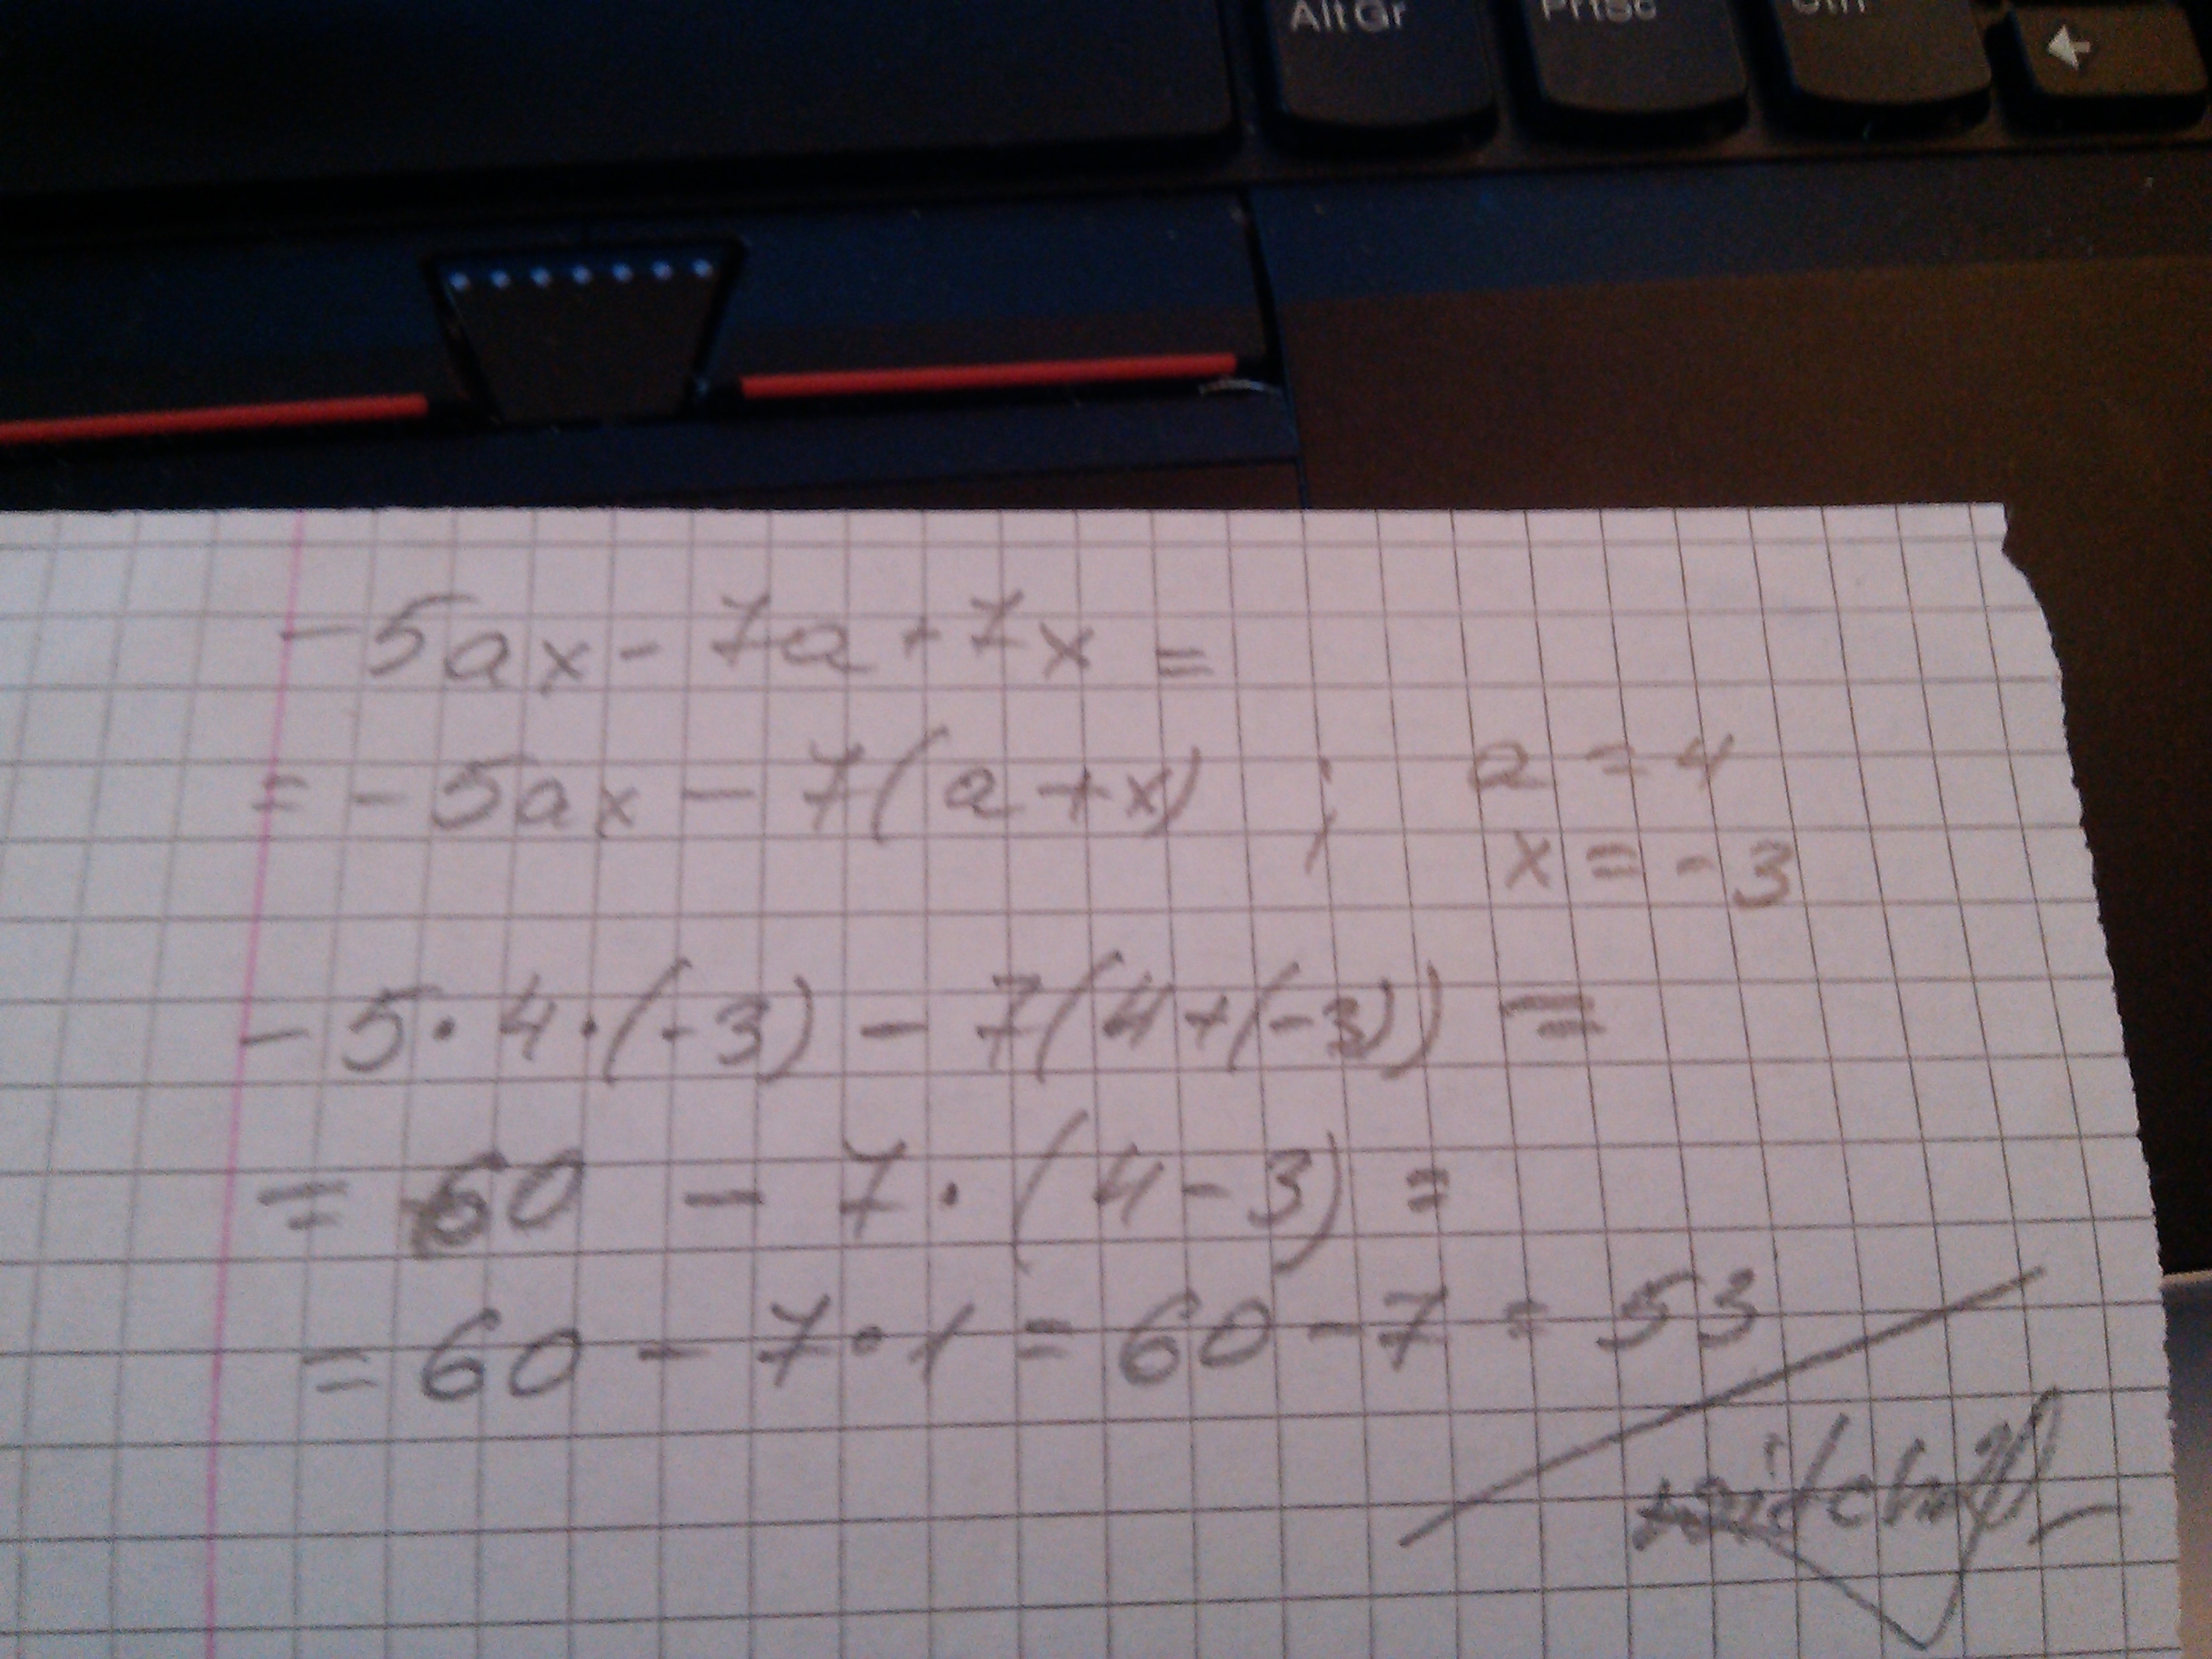 AltGr PrtSc Ctrl
-5ax - 7a + 7x =
= -5ax - 7(a+x) ; a = 4
x = -3
-5·4·(-3) - 7(4+(-3)) =
= 60 - 7·(4-3) =
= 60 - 7·1 = 60 - 7 = 53